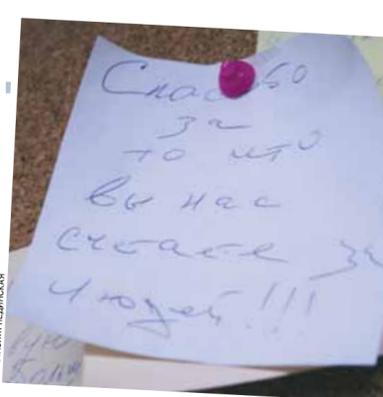 Спасибо
за
то что
вы нас
считаете за
людей!!!